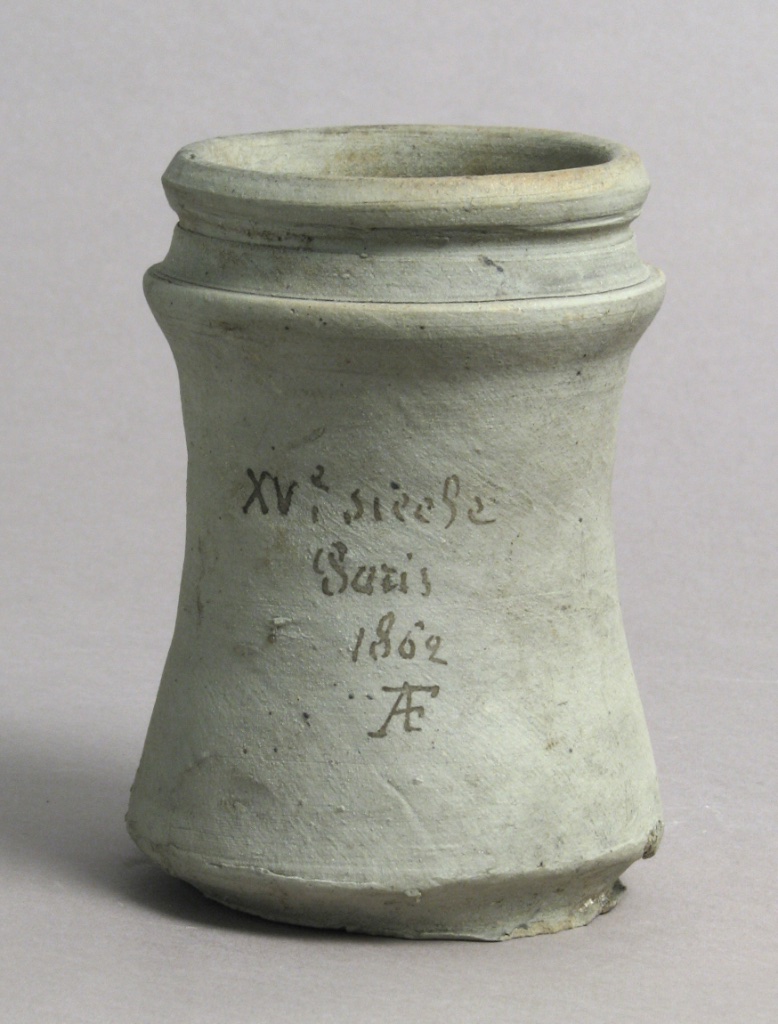 XVe siecle
Paris
1862
AF